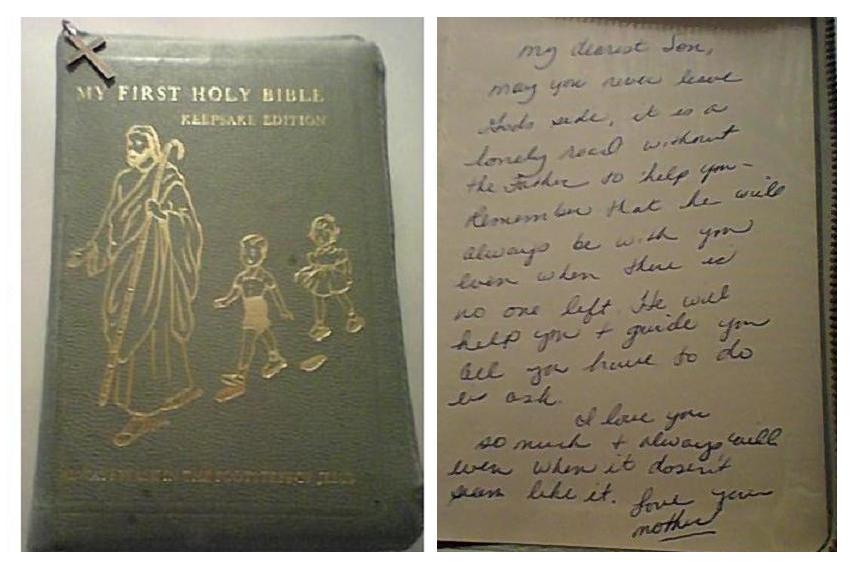 MY FIRST HOLY BIBLE
KEEPSAKE EDITION
IN THE FOOTSTEPS OF JESUS
my dearest Son,
may you never leave
Gods side, it is a
lonely road without
the Father to help you-
Remember that he will
always be with you
even when there is
no one left. He will
help you + guide you
all you have to do
is ask.
I love you
so much + always will
even when it dosen't
seem like it. Love your
mother